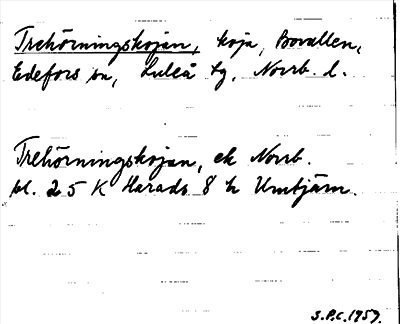 Trehörningskojan, koja, Bovallen,
Edefors sn, Luleå tg, Norrb. l.
Trehörningskojan, ek Norrb.
bl. 25 K Harads 8 h Umtjärn.
S.P.C. 1957.